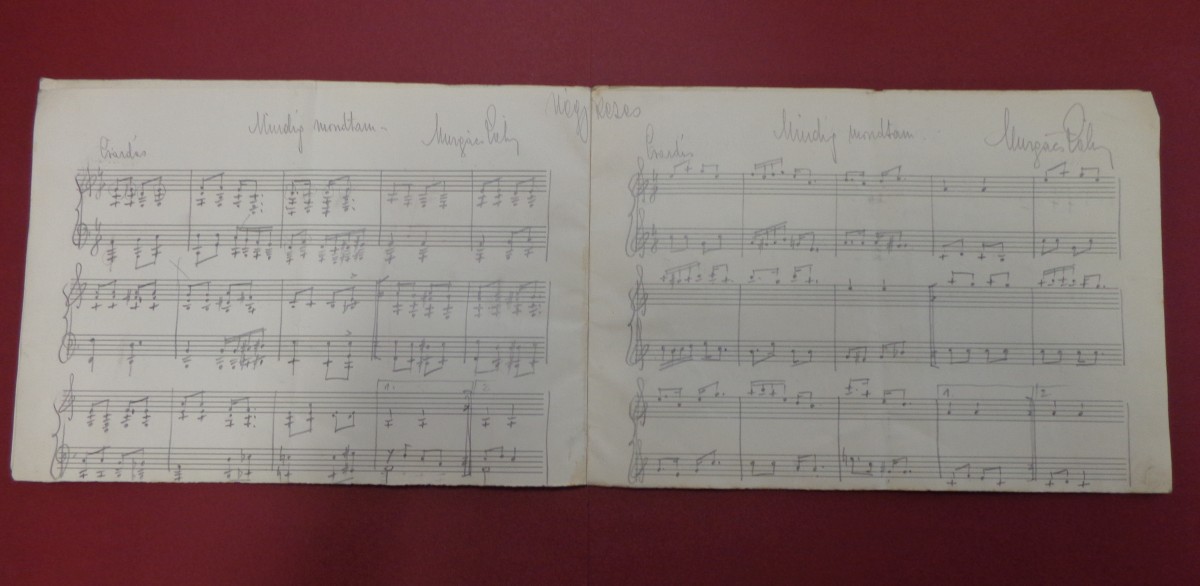 Négykezes
Mindig mondtam -
Murgács Kálmán
Csárdás
1.
2.
Mindig mondtam.
Murgács Kálmán
Csárdás
1
2.